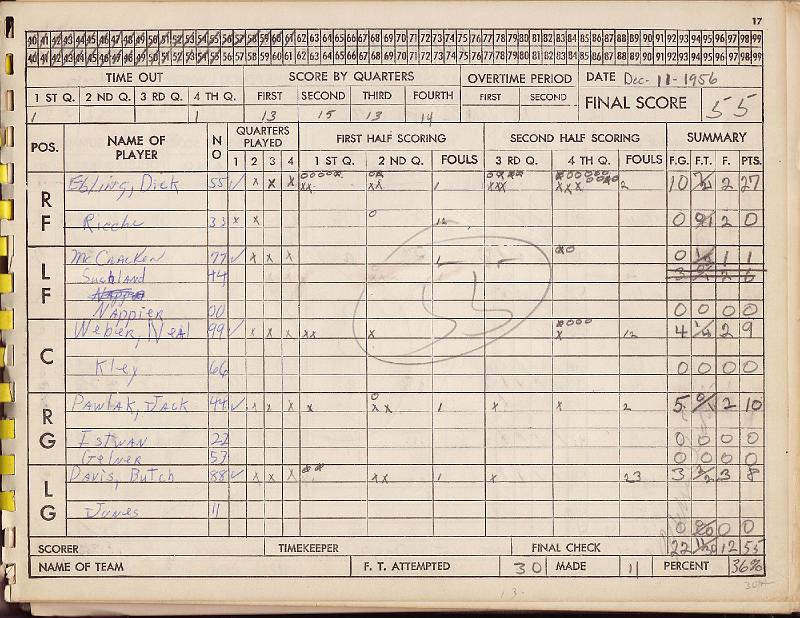 17
40 41 42 43 44 45 46 47 48 49 50 51 52 53 54 55 56 57 58 59 60 61 62 63 64 65 66 67 68 69 70 71 72 73 74 75 76 77 78 79 80 81 82 83 84 85 86 87 88 89 90 91 92 93 94 95 96 97 98 99
40 41 42 43 44 45 46 47 48 49 50 51 52 53 54 55 56 57 58 59 60 61 62 63 64 65 66 67 68 69 70 71 72 73 74 75 76 77 78 79 80 81 82 83 84 85 86 87 88 89 90 91 92 93 94 95 96 97 98 99
TIME OUT SCORE BY QUARTERS OVERTIME PERIOD DATE Dec- 11-1956
1 ST Q. 2 ND Q. 3 RD Q. 4 TH Q. FIRST SECOND THIRD FOURTH FIRST SECOND FINAL SCORE 55
1 1 13 15 13 14
POS. NAME OF PLAYER NO QUARTERS PLAYED FIRST HALF SCORING SECOND HALF SCORING SUMMARY
1 2 3 4 1 ST Q. 2 ND Q. FOULS 3 RD Q. 4 TH Q. FOULS F.G. F.T. F. PTS.
RF Ebling, Dick 55 ✓ x x x xx xx 1 xxx xxx 2 10 2 27
33 x x 0 12 0 2 0
LF McCracken 77 ✓ x x x 1 0 1 1
Suchland 44 3 2 6
Nappier 00 0 0 0 0
55
C Weber, Neal 99 ✓ x x x xx x x 12 4 2 9
Kley 66 0 0 0 0
RG Pawlak, Jack 44 ✓ x x x x xx 1 x x 2 5 2 10
Istwan 22 0 0 0 0
Gelner 53 0 0 0 0
LG Davis, Butch 88 ✓ x x x xx 1 x 23 3 3 8
Junes 11 0 0 0
SCORER TIMEKEEPER FINAL CHECK 22 12 55
NAME OF TEAM F. T. ATTEMPTED 30 MADE 11 PERCENT 36%